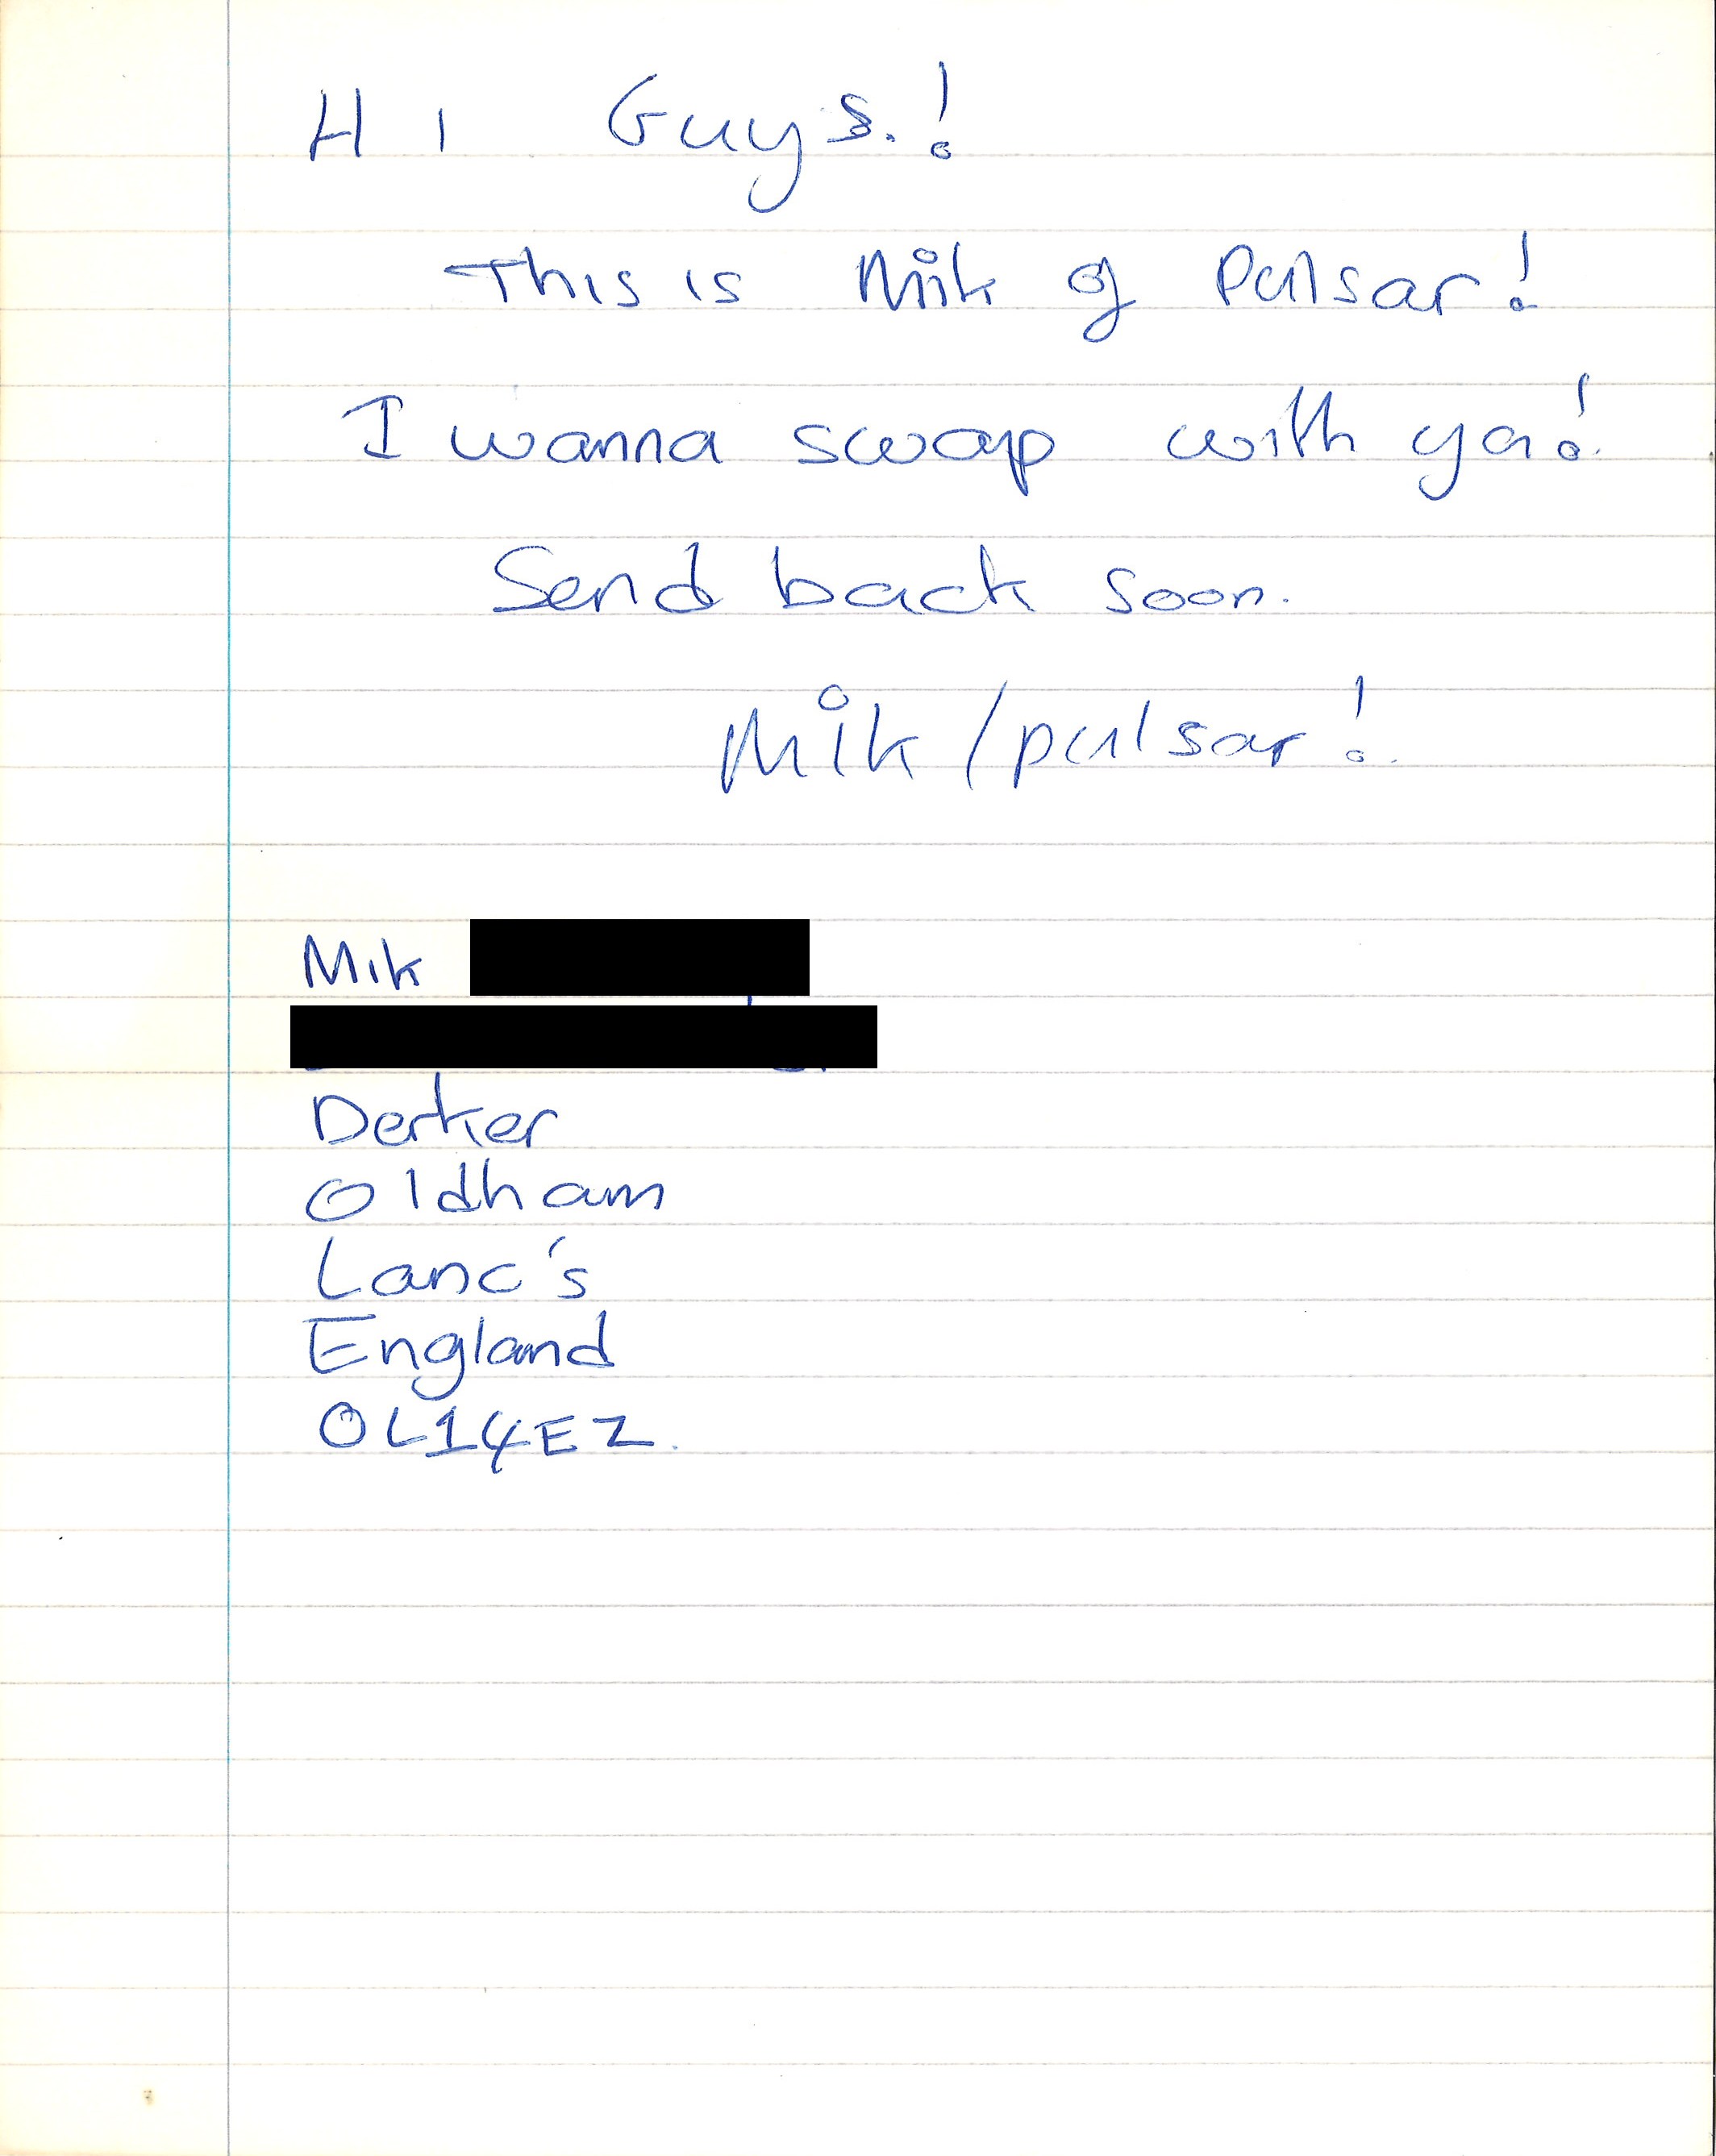 Hi Guys.!
This is Mik of Pulsar!
I wanna swap with ya!
Send back soon.
Mik / pulsar!
Mik
Derker
Oldham
Lanc's
England
OL14EZ.